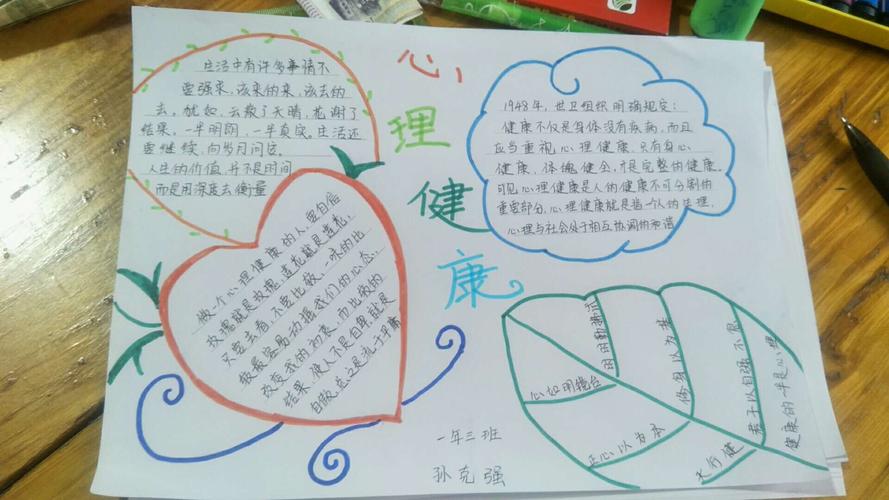 心理健康
生活中有许多事情不
要强求，该来的来，该去的
去。就如，云散了天晴，花谢了
结果。一半明朗，一半真实。生活还
要继续，向岁月问安。
人生的价值，并不是时间
而是用深度去衡量
1948年，世卫组织明确规定：
健康不仅是身体没有疾病，而且
应当重视心理健康，只有身心
健康，体魄健全，才是完整的健康。
可见心理健康是人的健康不可分割的
重要部分，心理健康就是指一个人的生理，
心理与社会处于相互协调的和谐
做一个心理健康的人，要自信
玫瑰就是玫瑰，莲花就是莲花，
只要去看，不要比较，一味的比
较最容易动摇我们的心态，
改变我的初衷，而比较的
结果，使人不是自卑，就是
自傲，总之是流于平庸
时时勤拂拭
心如明镜台
修身以为基
君子以自强不息
健康的一半是心理
正心以为本
天行健
一年三班
孙克强